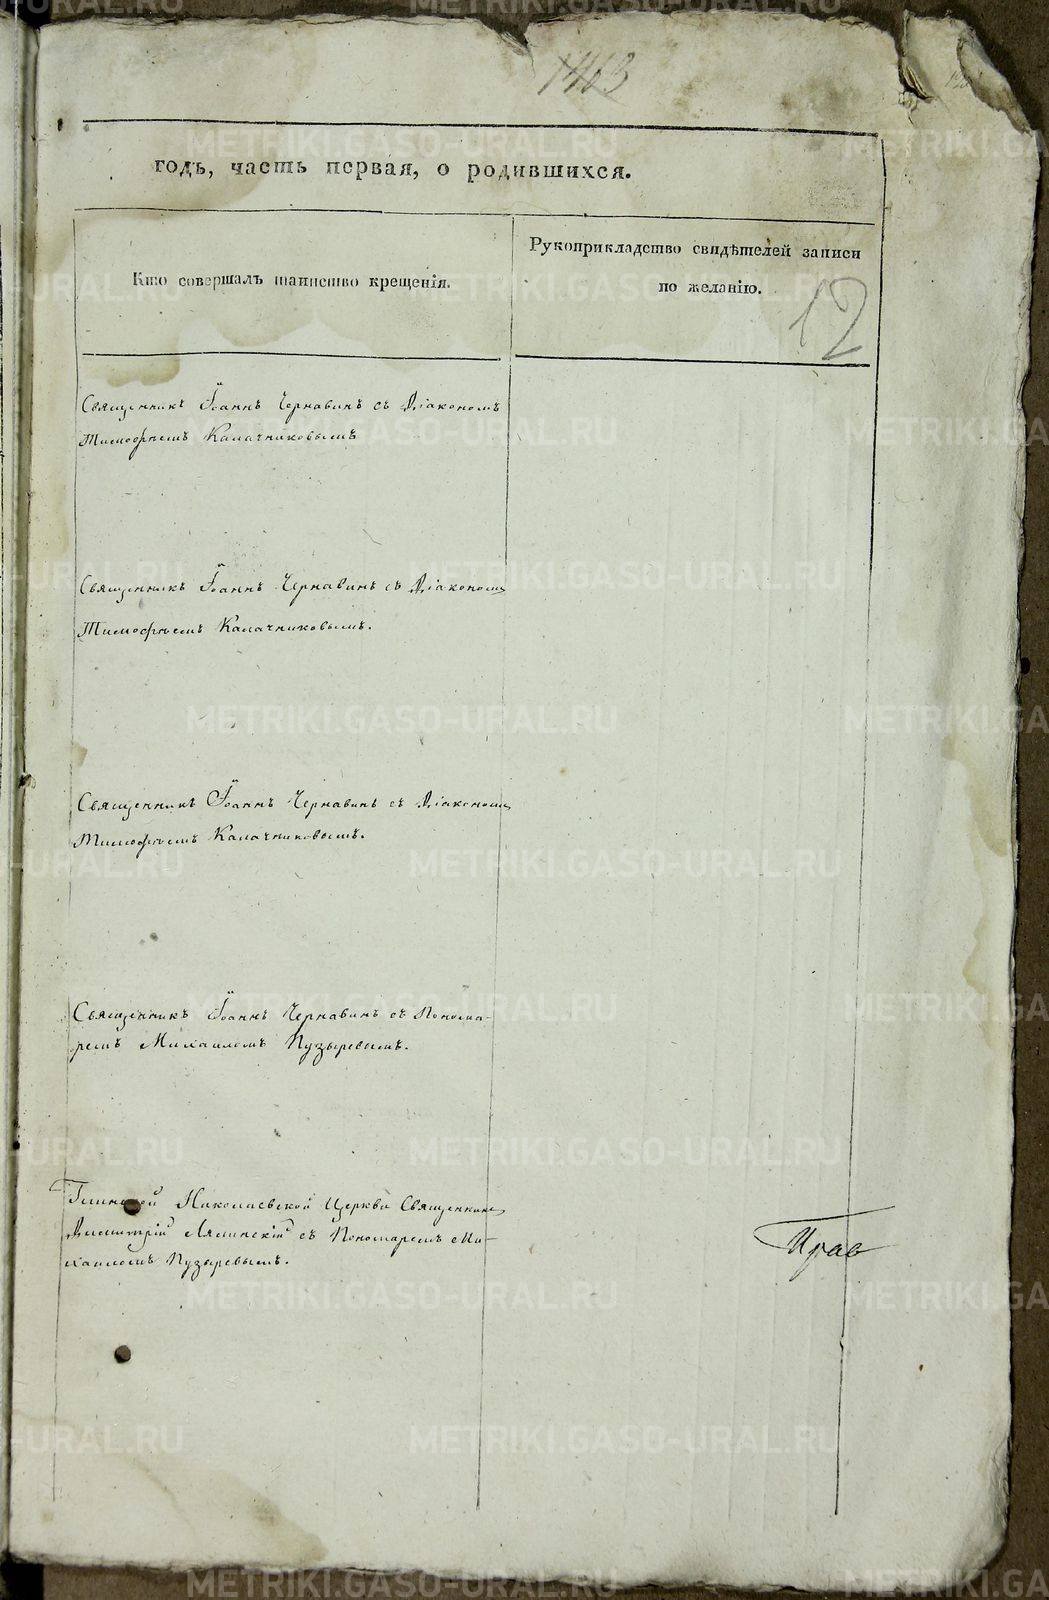 1463
годъ, часть первая, о родившихся.
Кто совершалъ таинство крещенія.
Рукоприкладство свидѣтелей записи
по желанію.
12
Священникъ Іоаннъ Чернавинъ съ Діакономъ
Тимофѣемъ Калачниковымъ
Священникъ Іоаннъ Чернавинъ съ Діакономъ
Тимофѣемъ Калачниковымъ.
Священникъ Іоаннъ Чернавинъ съ Діакономъ
Тимофѣемъ Калачниковымъ.
Священникъ Іоаннъ Чернавинъ съ Понома-
ремъ Михаиломъ Пузыревымъ.
Глинской Николаевской Церкви Священникъ
Димитрій Ляпинскій съ Пономаремъ Ми-
хаиломъ Пузыревымъ.
METRIKI.GASO-URAL.RU